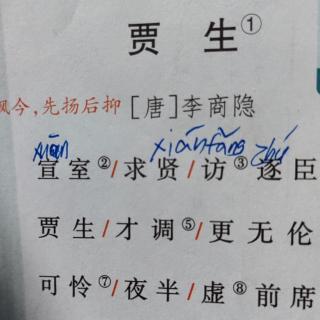 贾生①
讽今,先扬后抑 [唐]李商隐
xuān xiántǎng zhú
宣室②/求贤/访③逐臣
贾生/才调⑤/更无伦
可怜⑦/夜半/虚⑧前席